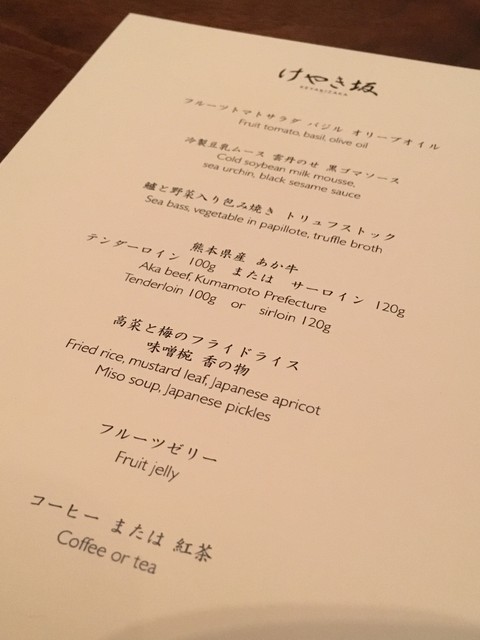 けやき坂
KEYAKIZAKA
フルーツトマトサラダ バジル オリーブオイル
Fruit tomato, basil, olive oil
冷製豆乳ムース 雲丹のせ 黒ゴマソース
Cold soybean milk mousse,
sea urchin, black sesame sauce
鱸と野菜入り包み焼き トリュフストック
Sea bass, vegetable in papillote, truffle broth
熊本県産 あか牛
テンダーロイン 100g または サーロイン 120g
Aka beef, Kumamoto Prefecture
Tenderloin 100g or sirloin 120g
高菜と梅のフライドライス
味噌椀 香の物
Fried rice, mustard leaf, Japanese apricot
Miso soup, Japanese pickles
フルーツゼリー
Fruit jelly
コーヒー または 紅茶
Coffee or tea